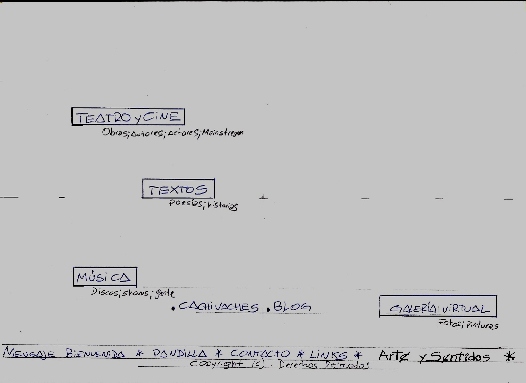 TEATRO y CINE
Obras; Autores; Actores; Mainstream
TEXTOS
Poesías; Historias
MÚSICA
Discos; shows; gente
. CACHIVACHES . BLOG
GALERÍA VIRTUAL
Fotos; Pinturas
MENSAJE BIENVENIDA * PANDILLA * CONTACTO * LINKS * Arte y Sentidos *
Copyright (c). Derechos Reservados